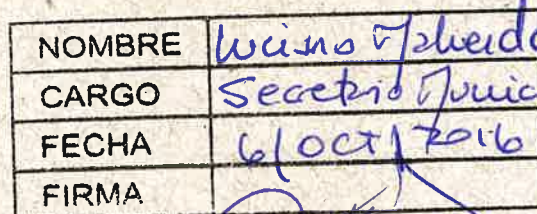 NOMBRE Luciano
CARGO Secretario
FECHA 6/OCT/2016
FIRMA